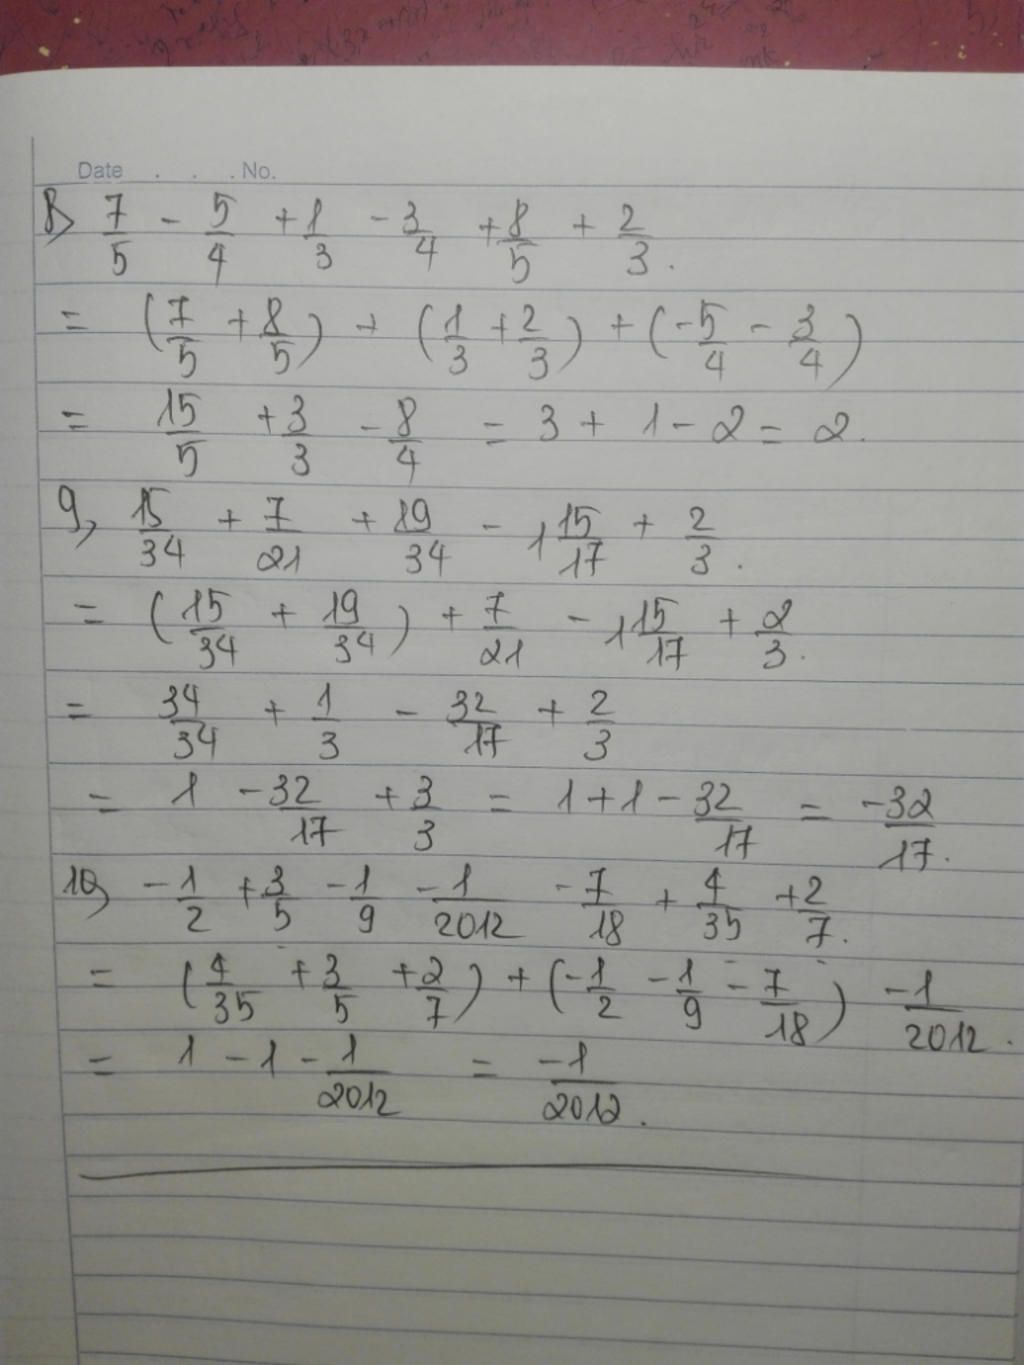 Date . . . No.
8) 7/5 - 5/4 + 1/3 - 3/4 + 8/5 + 2/3.
= (7/5 + 8/5) + (1/3 + 2/3) + (-5/4 - 3/4)
= 15/5 + 3/3 - 8/4 = 3 + 1 - 2 = 2.
9, 15/34 + 7/21 + 19/34 - 1 15/17 + 2/3.
= (15/34 + 19/34) + 7/21 - 1 15/17 + 2/3.
= 34/34 + 1/3 - 32/17 + 2/3
= 1 - 32/17 + 3/3 = 1 + 1 - 32/17 = -32/17.
10) -1/2 + 3/5 - 1/9 - 1/2012 - 7/18 + 4/35 + 2/7.
= (4/35 + 3/5 + 2/7) + (-1/2 - 1/9 - 7/18) - 1/2012.
= 1 - 1 - 1/2012 = -1/2012.